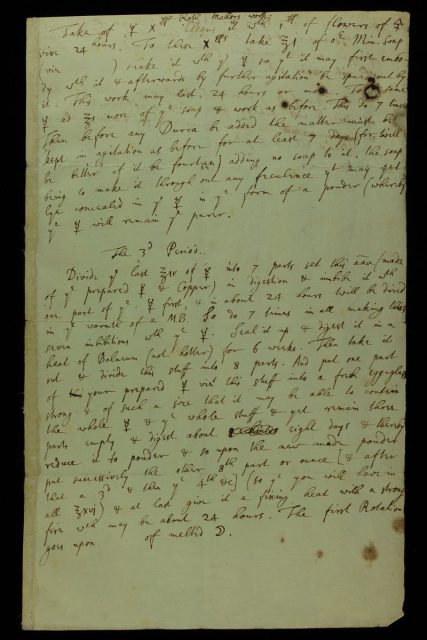 Take of ☿ X
vive 24 hours. To these X take ℥1 of oe Min. soap
(viz ) make it wth ye ☿ so yt it may first embo-
dy wth it & afterwards by further agitation be spued out by
it. This work may last 24 hours or more. To ye same
☿ ad ℥1 more of ye soap & work as before. This do 7 times
Then before any Ducea be added the matter must be
kept in agitation as before for at least 7 days (for will
be better if it be fourteen) adding no soap to it, the soap
being to make it through out any feculence yt may yet
lye concealed in ye ☿ in ye form of a pouder (whereby
ye ☿ will remain ye purer.
The 3d Period.
Divide ye last ℥xv of ☿ into 7 parts set this aaa (made
of ye prepared ☿ & Copper) in digestion & imbibe it wth
one part of ye ☿ first, & in about 24 hours will be dried
in ye warmth of a MB. So do 7 times in all making thus
seven inhibitions wth ye ☿. Seal it up & digest it in a
heat of Balneum (not hotter) for 6 weeks. Then take it
out & divide this stuff into 8 parts. And put one part
of your prepared ☿ with this stuff into a fresh egg-glass
strong & of such a size that it may be able to contein
the whole ☿ & ye whole stuff & yet remain three
parts empty & digest about eight days & thereby
reduce it to pouder & so upon the new made pouder
put successively the other 8th part or ounce [& after
that a 3d & then ye 4th &c] (so ye you will have in
all ℥xvj) & at last give it a fixing heat with a strong
fire wch may be about 24 hours. The first Rotation
goes upon of melted ☽.